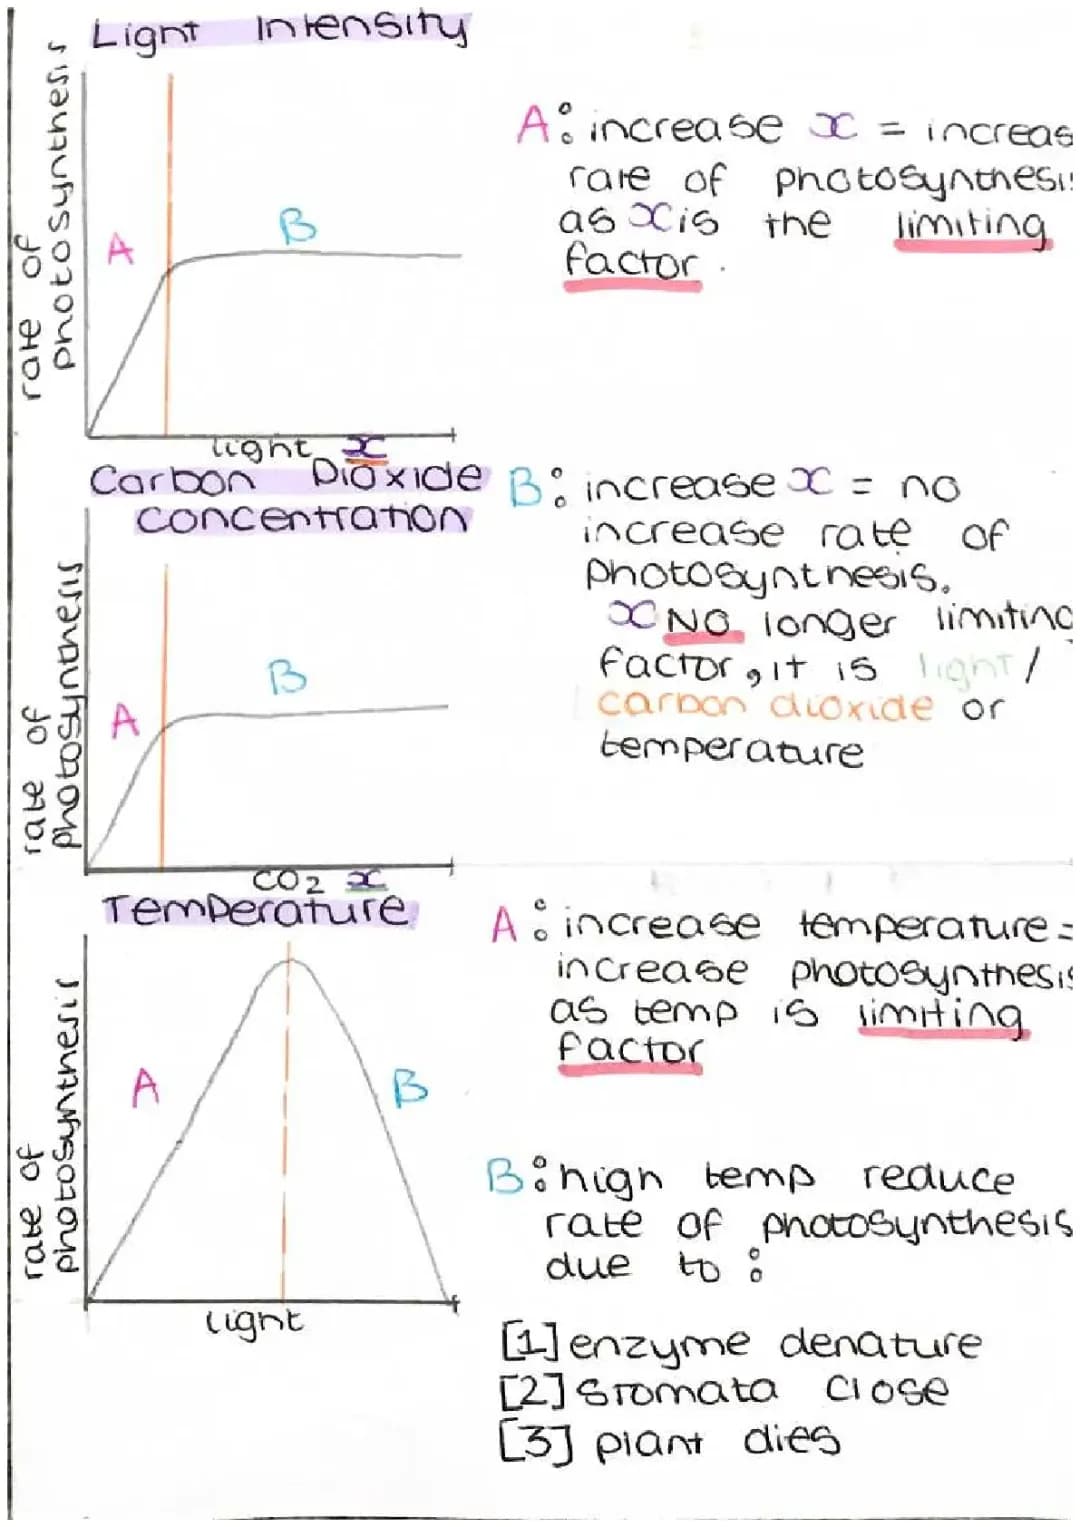 Light Intensity
rate of
photosynthesis
A
B
light x
A: increase x = increas
rate of photosynthesis
as x is the limiting
factor.
Carbon Dioxide
concentration
rate of
photosynthesis
A
B
CO2 x
B: increase x = no
increase rate of
photosynthesis.
x NO longer limiting
factor, it is light/
carbon dioxide or
temperature
Temperature
rate of
photosynthesis
A
B
light
A: increase temperature =
increase photosynthesis
as temp is limiting
factor
B: high temp reduce
rate of photosynthesis
due to:
[1] enzyme denature
[2] stomata close
[3] plant dies